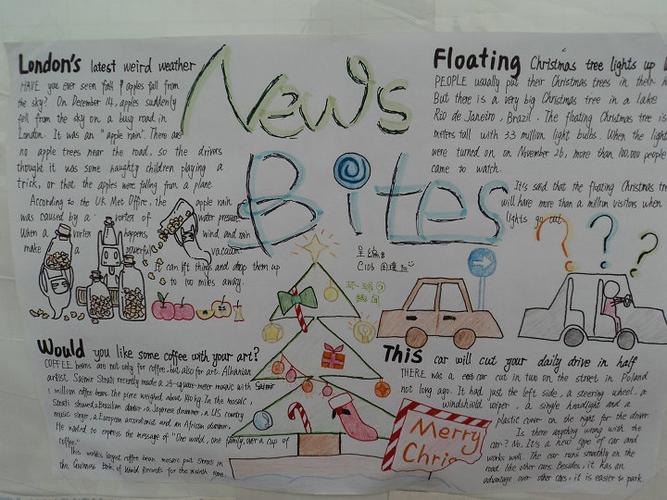 London's latest weird weather
HAVE you ever seen fall apples fall from
the sky? On December 14, apples suddenly
fell from the sky on a busy road in
London. It was an "apple rain". There are
no apple trees near the road, so the drivers
thought it was some naughty children playing a
trick, or that the apples were falling from a plane
According to the UK Met Office, the apple rain
was caused by a vortex of water pressure
When a vortex happens wind and rain
make a powerful vacuum
It can lift things and drop them up
to 100 miles away.
News
Bites
Floating Christmas tree lights up
PEOPLE usually put their Christmas trees in their
But there is a very big Christmas tree in a lake
Rio de Janeiro, Brazil. The floating Christmas tree is
meters tall with 3.3 million light bulbs. When the light
were turned on on November 26, more than 100,000 people
came to watch.
It's said that the floating Christmas tree
will have more than a million visitors when
lights go out.
C108
Would you like some coffee with your art?
COFFEE beans are not only for coffee, but also for art. Albanian
artist Saimir Strati recently made a 25-square-meter mosaic with
million coffee beans. The piece weighed about 140 kg. In the mosaic,
Strati showed a Brazilian dancer, a Japanese drummer, a US country
music singer, a European accordionist and an African drummer.
He wanted to express the message of "One world, one family, over a cup of
coffee."
This world's largest coffee bean mosaic put Strati in
the Guinness Book of World Records for the
Merry
Chris
This car will cut your daily drive in half
THERE was a car cut in two on the street in Poland
not long ago. It had just the left side, a steering wheel, a
windshield wiper, a single headlight and a
plastic cover on the right for the driver
Is there anything wrong with the
car? No. It's a new type of car and
works well. The car runs smoothly on the
road like other cars. Besides, it has an
advantage over other cars. It is easier to park.